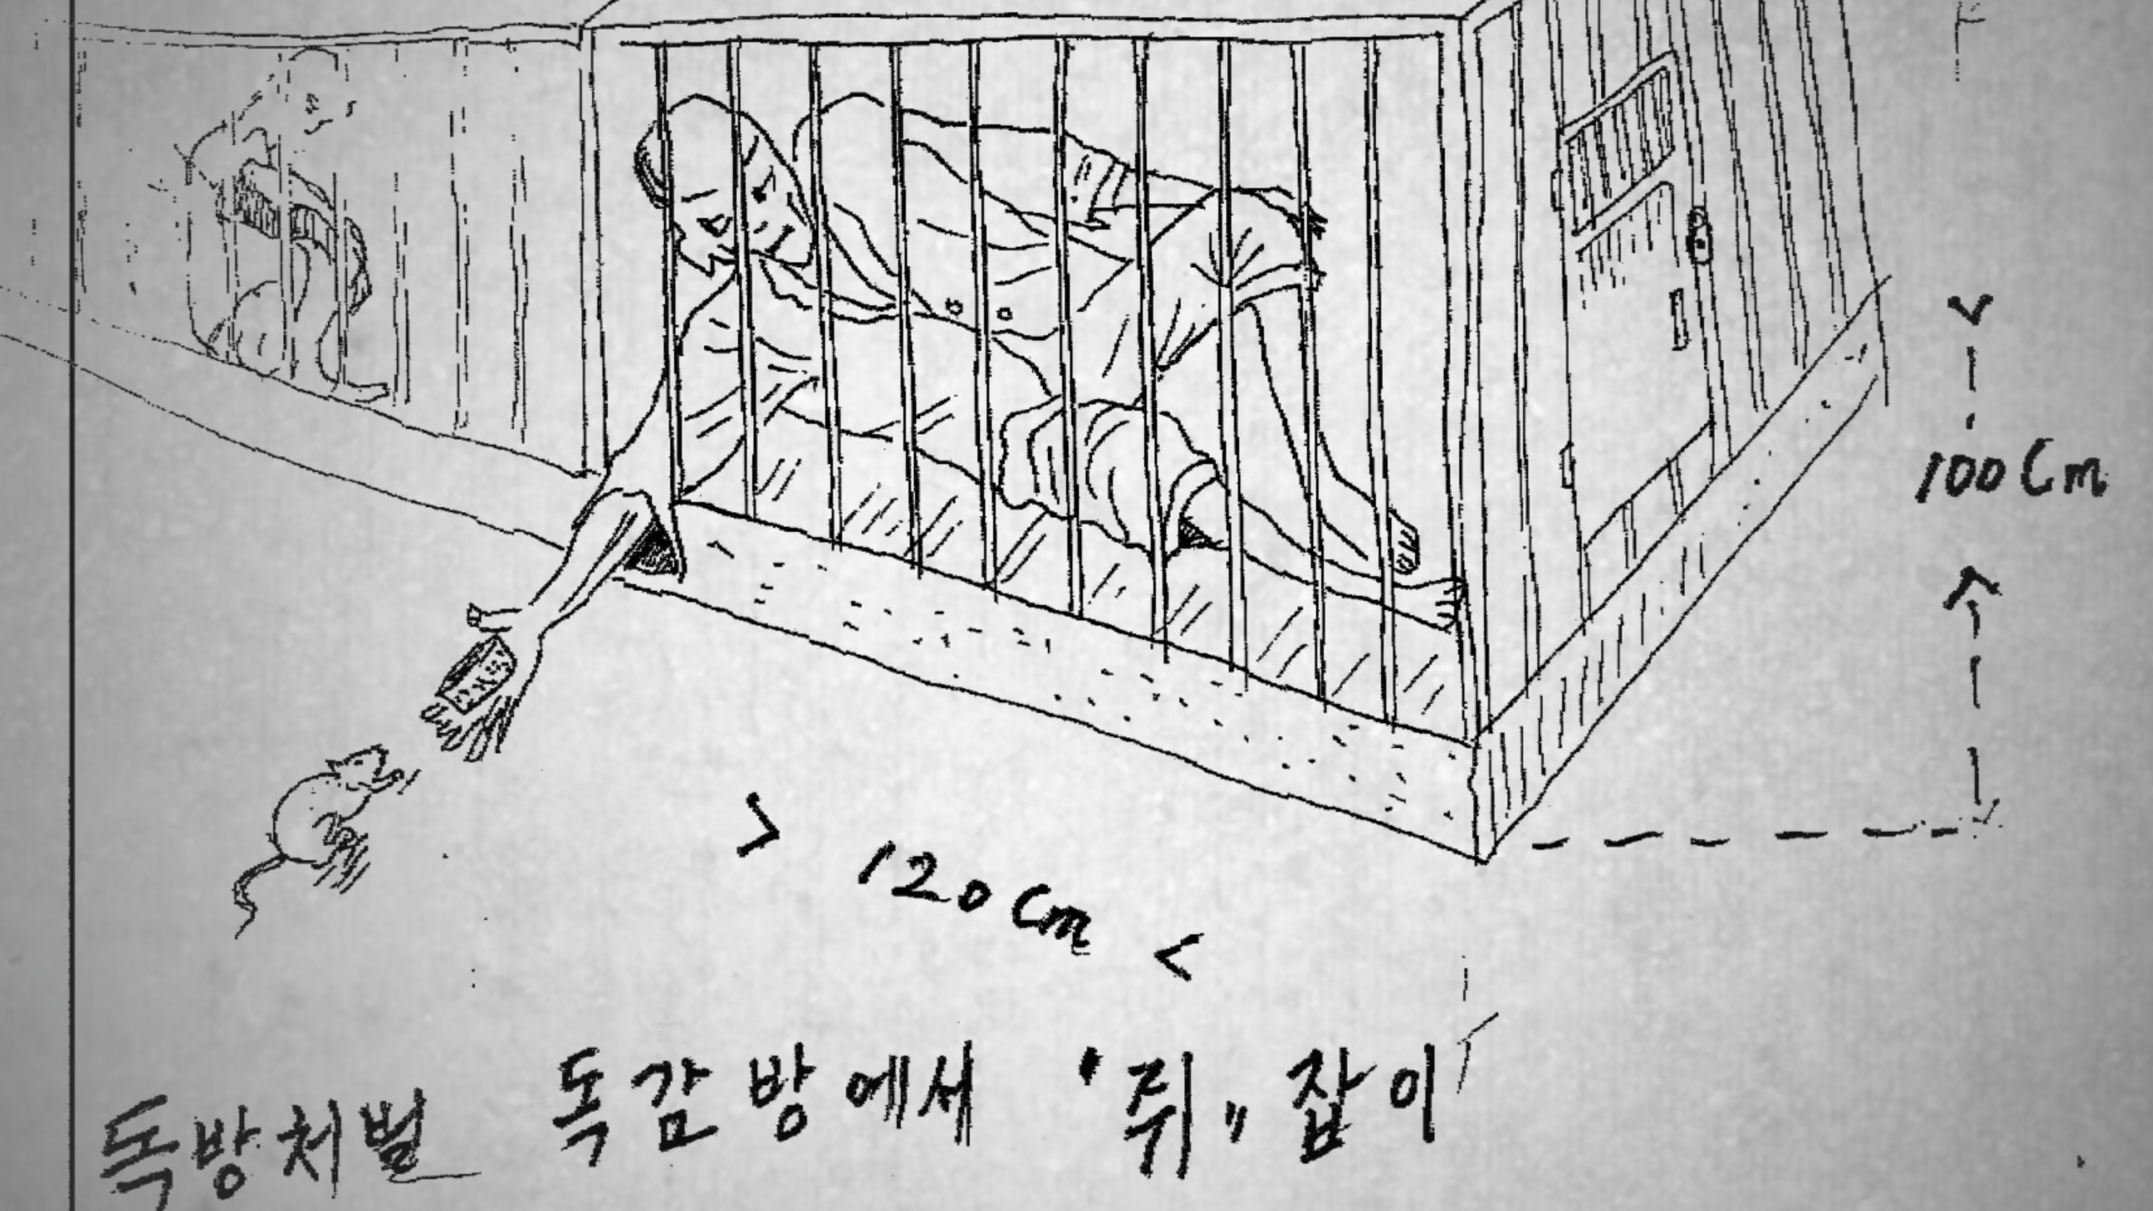 100 Cm
120 Cm
독방처벌 독감방에서 "쥐" 잡이